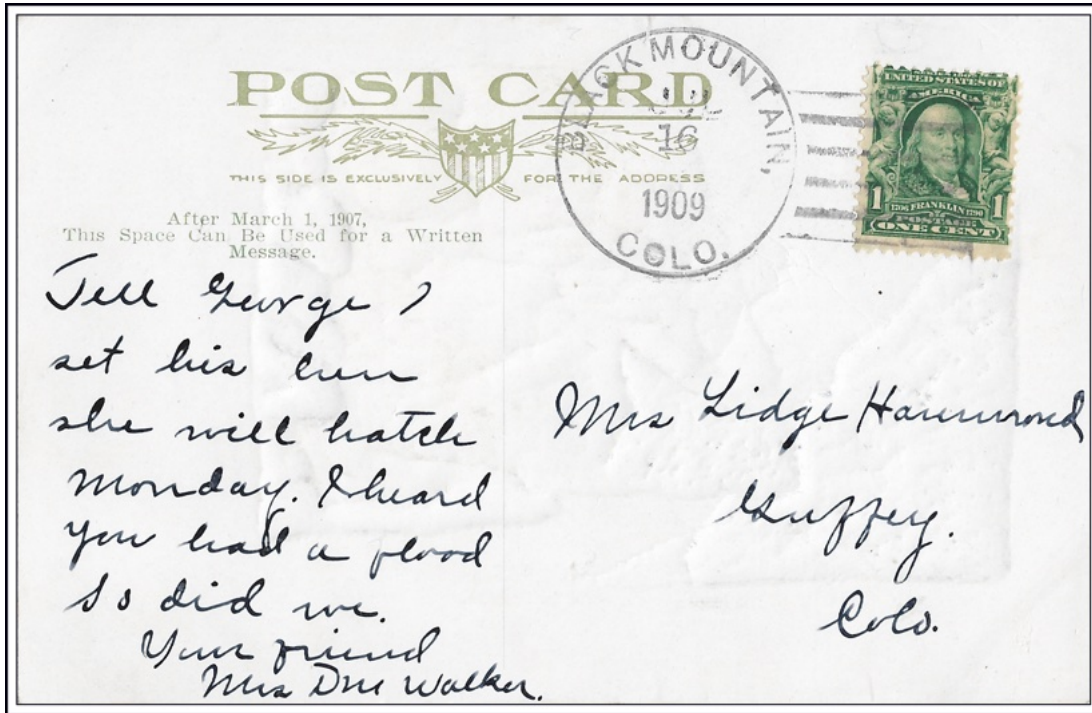 POST CARD
THIS SIDE IS EXCLUSIVELY FOR THE ADDRESS
After March 1, 1907,
This Space Can Be Used for a Written
Message.
BLACK MOUNTAIN,
16
1909
COLO.
UNITED STATES OF
AMERICA
1 1706 FRANKLIN 1790 1
POSTAGE
ONE CENT
Tell George I
set his hen
she will hatch
Monday. I heard
you had a flood
So did we.
Your friend
Mrs DM Walker.
Mrs Lidge Hammond
Guffey.
Colo.